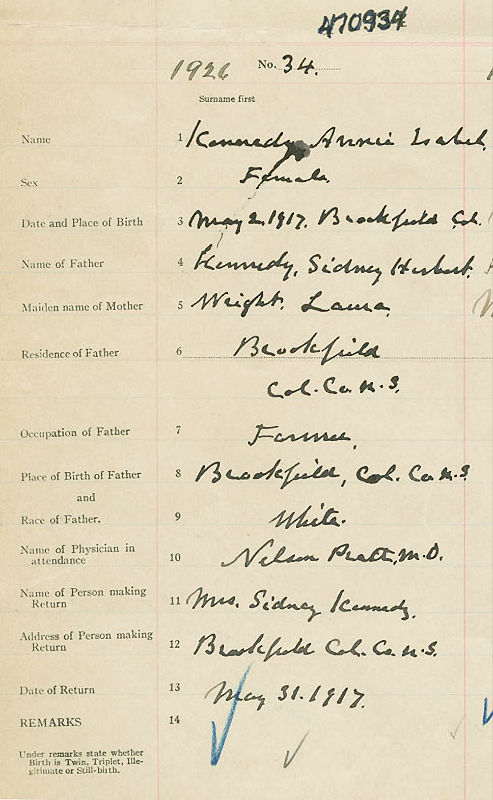 470934
1926 No. 34.
Surname first
Name 1 Kennedy Annie Isabel,
Sex 2 Female.
Date and Place of Birth 3 May 2. 1917. Brookfield Col.
Name of Father 4 Kennedy, Sidney Herbert.
Maiden name of Mother 5 Wright. Laura
Residence of Father 6 Brookfield
Col. Co. N.S.
Occupation of Father 7 Farmer,
Place of Birth of Father 8 Brookfield, Col. Co. N.S.
and
Race of Father. 9 White.
Name of Physician in
attendance 10 Nelson Pratt, M.D.
Name of Person making
Return 11 Mrs. Sidney Kennedy.
Address of Person making
Return 12 Brookfield Col. Co. N.S.
Date of Return 13 May 31. 1917.
REMARKS 14
Under remarks state whether
Birth is Twin, Triplet, Ille-
gitimate or Still-birth.